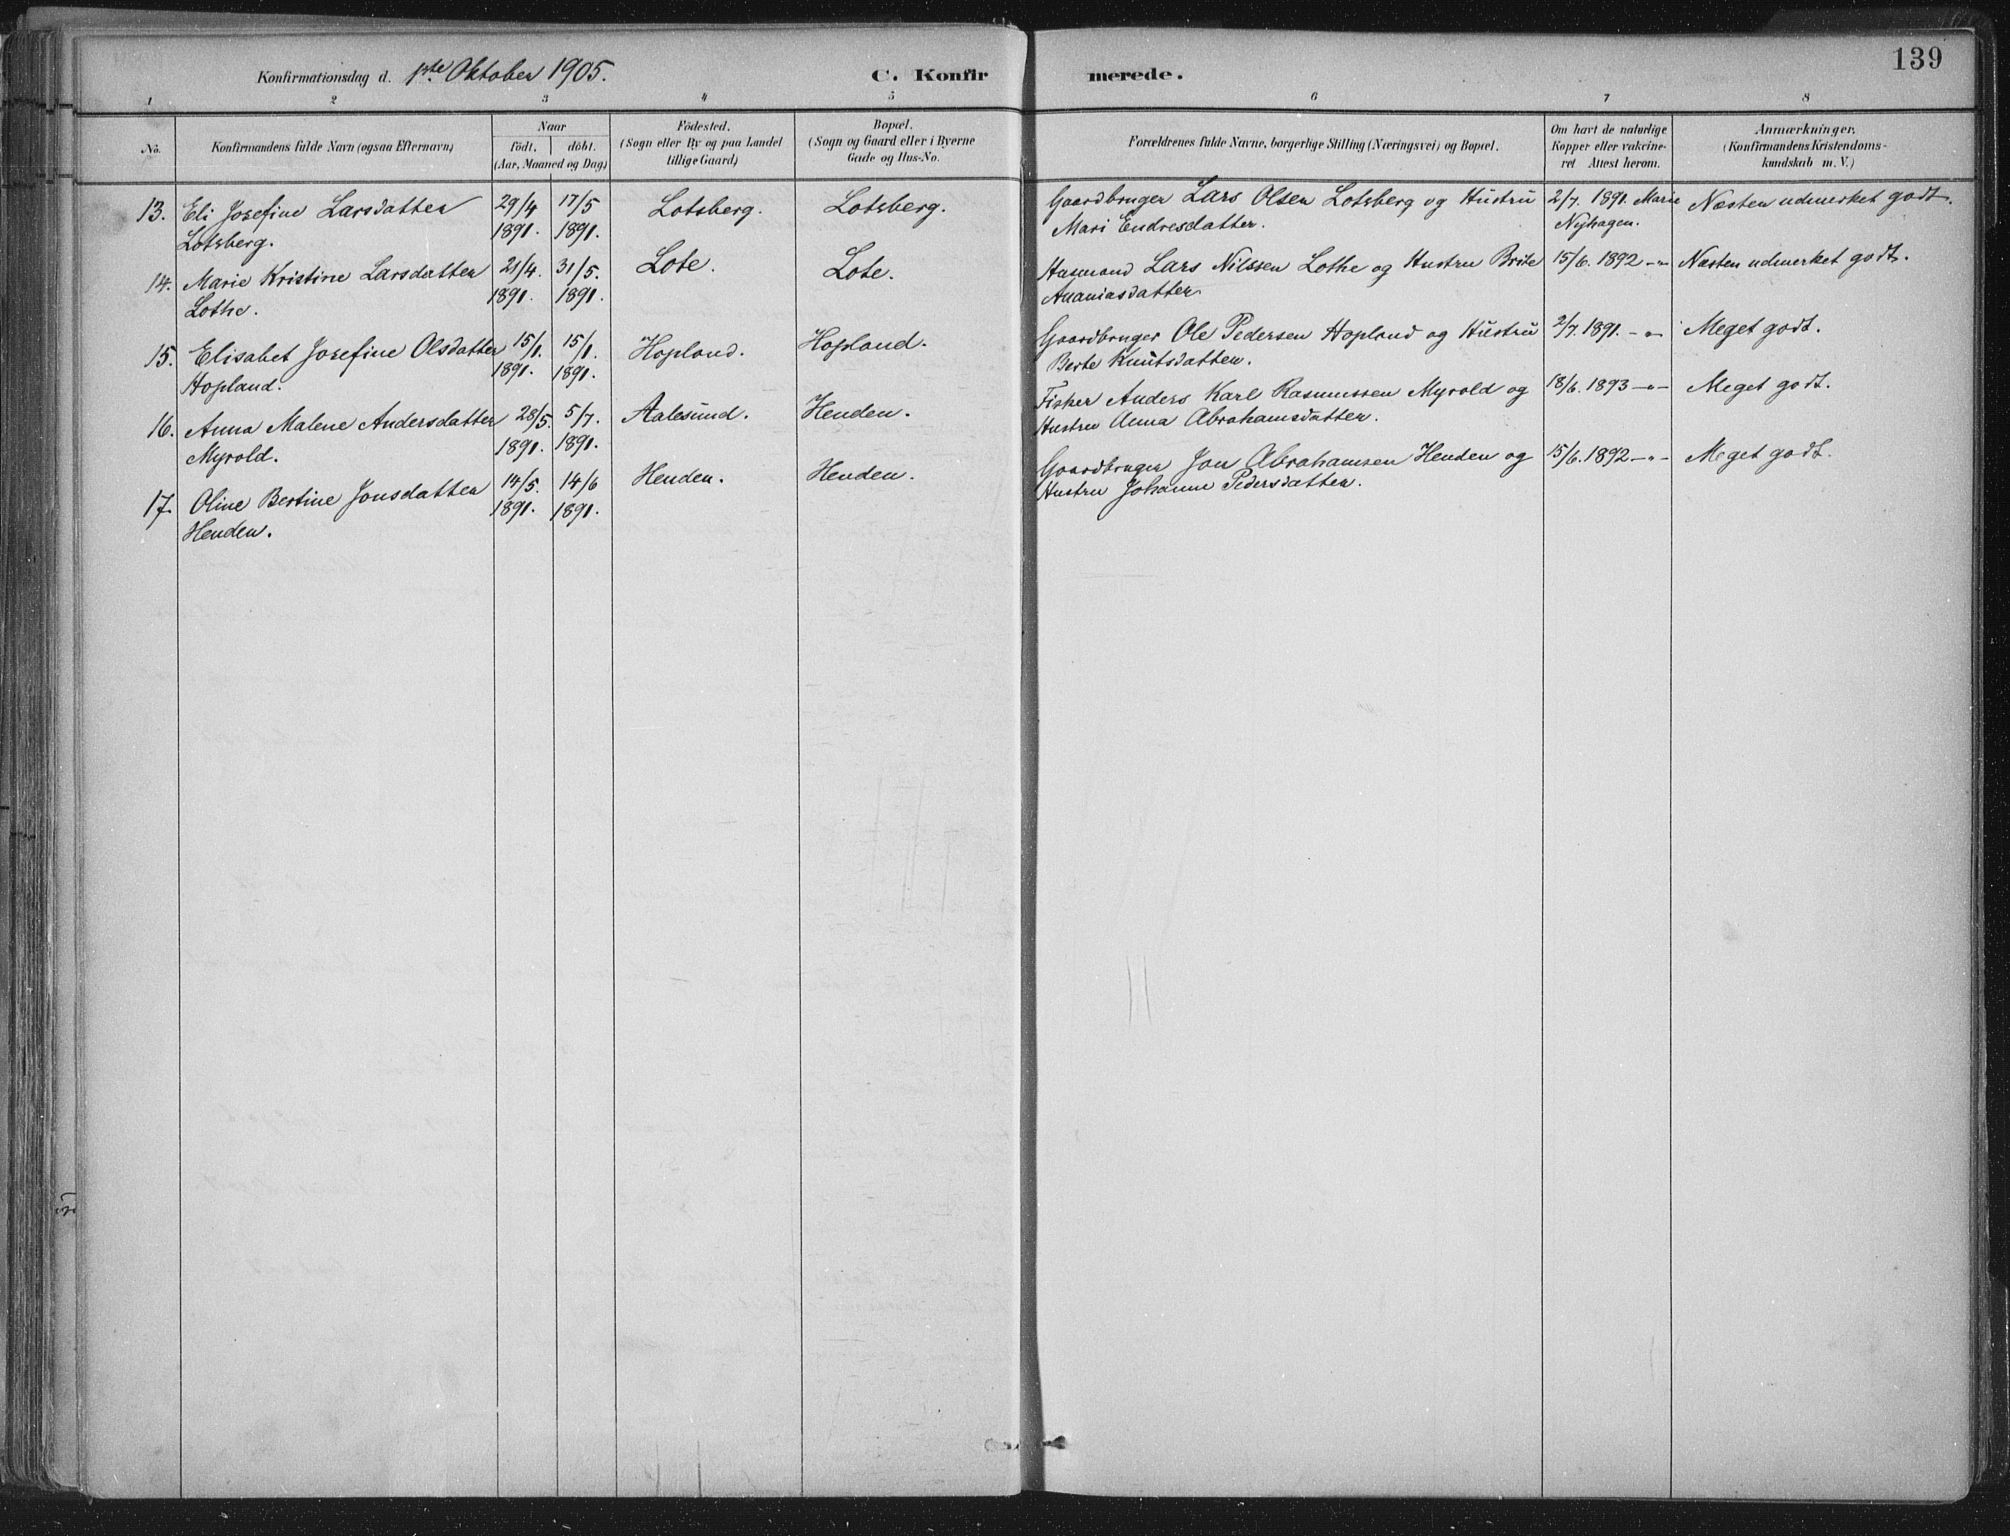 139
Konfirmationsdag d. 1ste Oktober 1905. C. Konfirmerede.
1 2 3 4 5 6 7 8
No.
Konfirmandens fulde Navn (ogsaa Efternavn)
Naar
födt. döbt.
(Aar, Maaned og Dag)
Födested.
(Sogn eller By og paa Landet
tillige Gaard)
Bopæl.
(Sogn og Gaard eller i Byerne
Gade og Hus-No.
Forældrenes fulde Navne, borgerlige Stilling (Næringsvei) og Bopæl.
Om havt de naturlige
Kopper eller vakcine-
ret Attest herom.
Anmærkninger.
(Konfirmandens Kristendoms-
kundskab m. V.)
13. Eli Josefine Larsdatter 29/4 17/5 Lotsberg. Lotsberg. Gaardbruger Lars Olsen Lotsberg og Hustru 2/7. 1891. Marie Næsten udmerket godt.
Lotsberg. 1891. 1891. Mari Endresdatter. Nyhagen.
14. Marie Kristine Larsdatter 21/4. 31/5. Lote. Lote. Husmand Lars Nilssen Lothe og Hustru Brite 15/6. 1892 -"- Næsten udmerket godt.
Lothe. 1891. 1891. Ananiasdatter.
15. Elisabet Josefine Olsdatter 15/1. 15/1. Hopland. Hopland. Gaardbruger Ole Pedersen Hopland og Hustru 2/7. 1891. -"- Meget godt.
Hopland. 1891. 1891. Berte Knutsdatter.
16. Anna Malene Andersdatter 28/5. 5/7. Aalesund. Henden. Fisker Anders Karl Rasmussen Myrold og 18/6. 1893 -"- Meget godt.
Myrold. 1891. 1891. Hustru Anna Abrahamsdatter.
17. Oline Bertine Jonsdatter 14/5. 14/6 Henden. Henden. Gaardbruger Jon Abrahamsen Henden og 15/6. 1892 -"- Meget godt.
Henden. 1891. 1891. Hustru Johanne Pedersdatter.